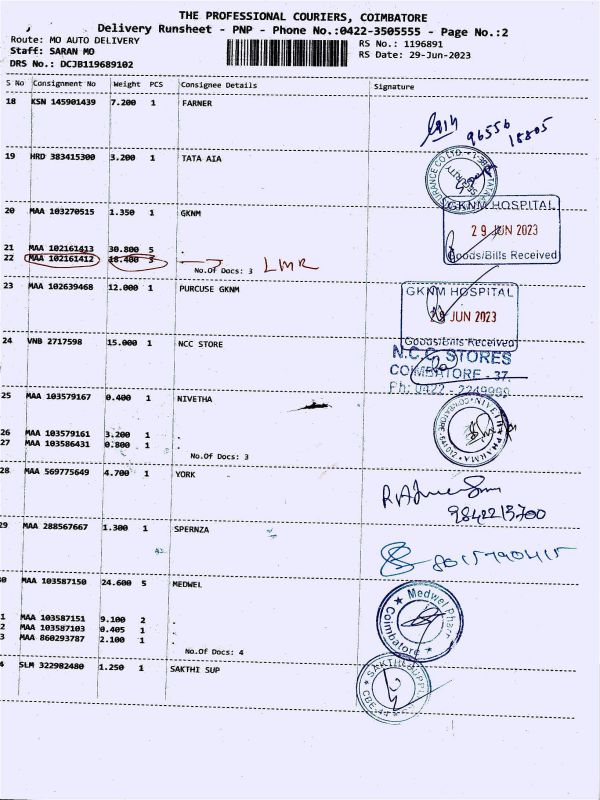 THE PROFESSIONAL COURIERS, COIMBATORE
Delivery Runsheet - PNP - Phone No.:0422-3505555 - Page No.:2
Route: MO AUTO DELIVERY
RS No.: 1196891
Staff: SARAN MO
RS Date: 29-Jun-2023
DRS No.: DCJB119689102
S No Consignment No Weight PCS Consignee Details Signature
18 KSN 145901439 7.200 1 FARNER
96556
18805
19 HRD 383415300 3.200 1 TATA AIA
20 MAA 103270515 1.350 1 GKNM
GKNM HOSPITAL
29 JUN 2023
Goods/Bills Received
21 MAA 102161413 30.800 5 .
22 MAA 102161412 18.400 3 .
No.Of Docs: 3 LMR
23 MAA 102639468 12.000 1 PURCUSE GKNM
GKNM HOSPITAL
29 JUN 2023
Goods/Bills Received
24 VNB 2717598 15.000 1 NCC STORE
N.C.C. STORES
COIMBATORE - 37.
Ph: 0422 - 2249999
25 MAA 103579167 0.400 1 NIVETHA
NIVETH PHARMA
26 MAA 103579161 3.200 1 .
27 MAA 103586431 0.800 1 .
No.Of Docs: 3
28 MAA 569775649 4.700 1 YORK
9842213700
29 MAA 288567667 1.300 1 SPERNZA
8015790415
0 MAA 103587150 24.600 5 MEDWEL
Medwel Phar
Coimbatore
1 MAA 103587151 9.100 2 .
2 MAA 103587103 0.405 1 .
3 MAA 860293787 2.100 1 .
No.Of Docs: 4
4 SLM 322982480 1.250 1 SAKTHI SUP
SAKTHI SUPPLI